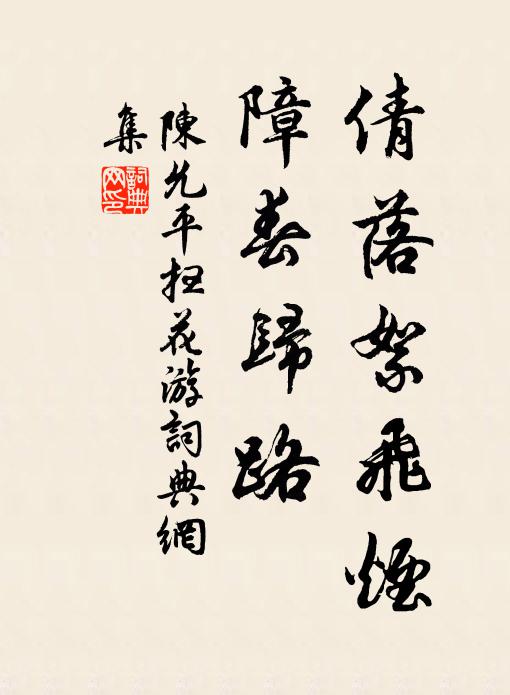 倩落絮飛煙
障春歸路
陳允平扫花游詞典網
集
詞典网印